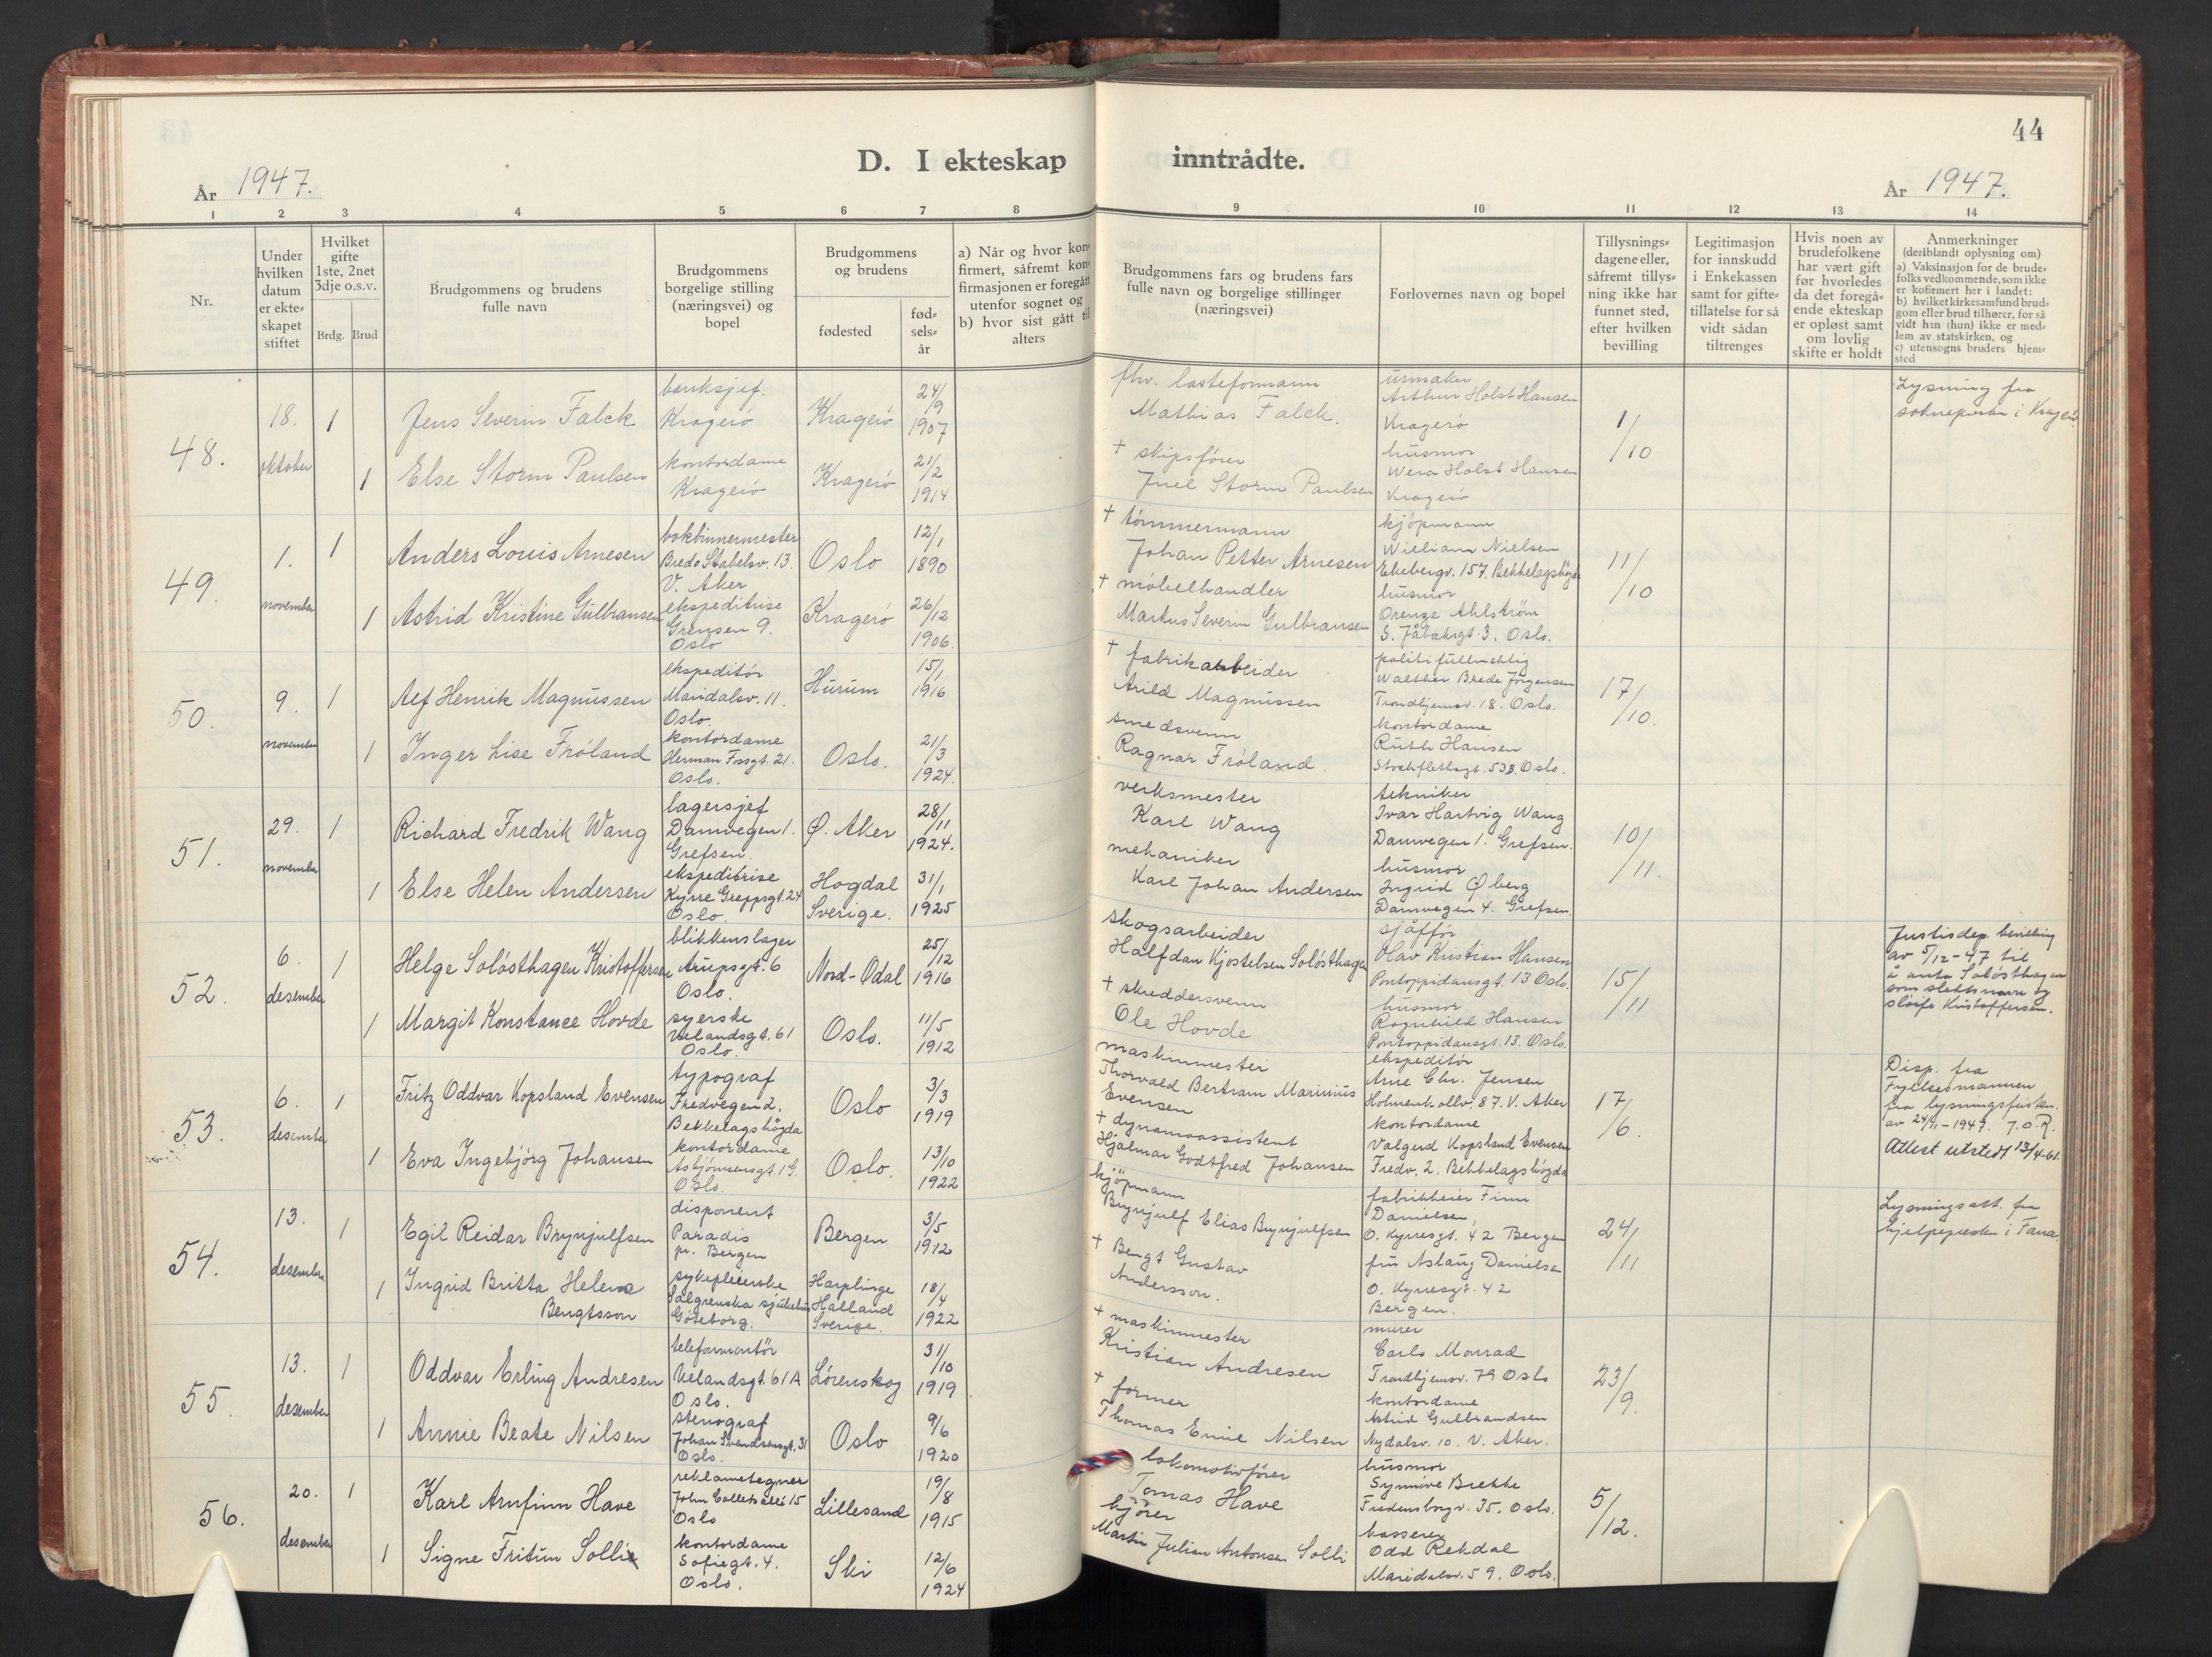 44
D. I ekteskap inntrådte.
År 1947.
År 1947.
1 2 3 4 5 6 7 8 9 10 11 12 13 14
Nr.
Under hvilken datum er ekte-skapet stiftet
Hvilket gifte 1ste, 2net 3dje o.s.v.
Brdg. Brud
Brudgommens og brudens fulle navn
Brudgommens borgelige stilling (næringsvei) og bopel
Brudgommens og brudens
fødested
fød-sels-år
a) Når og hvor kon-firmert, såfremt kon-firmasjonen er foregått utenfor sognet og
b) hvor sist gått til alters
Brudgommens fars og brudens fars fulle navn og borgelige stillinger (næringsvei)
Forlovernes navn og bopel
Tillysnings-dagene eller, såfremt tillys-ning ikke har funnet sted, efter hvilken bevilling
Legitimasjon for innskudd i Enkekassen samt for gifte-tillatelse for så vidt sådan tiltrenges
Hvis noen av brudefolkene har vært gift før hvorledes da det foregå-ende ekteskap er opløst samt om lovlig skifte er holdt
Anmerkninger
(deriblandt oplysning om)
a) Vaksinasjon for de brude-folks vedkommende, som ikke er kofirmert her i landet:
b) hvilket kirkesamfund brud-gom eller brud tilhører, for så vidt han (hun) ikke er med-lem av statskirken, og
c) utensogns bruders hjem-sted
48.
18. oktober
1 Jens Severin Falck
banksjef.
Kragerö
Kragerö
24/9 1907
fhv. lasteformann
Mathias Falck.
urmaker
Arthur Holst Hansen
Kragerö
1/10
Lysning fra
soknepresten i Kragerö
1 Else Storm Paulsen
kontordame
Kragerö
Kragerö
21/2 1914
+ skipsfører
Juel Storm Paulsen
husmor
Wera Holst Hansen
Kragerö
49.
1. november
1 Anders Louis Arnesen
bokbinnermester
Bredo Stabelsv. 13.
V. Aker
Oslo
12/1 1890
+ tömmermann
Johan Petter Arnesen
kjöpmann
William Nielsen
Ekebergv. 157. Bekkelagshögda
11/10
1 Astrid Kristine Gulbransen
ekspeditrise
Grensen 9.
Oslo
Kragerö
26/12 1906.
+ möbelhandler
Markus Severin Gulbransen
husmor
Orenze Ahlström
S. Jåbæksgt. 3. Oslo.
50.
9. november
1 Alf Henrik Magnussen
ekspeditör
Maridalsv. 11.
Oslo.
Hurum
15/1 1916
+ fabrikarbeider
Arild Magnussen
politifullmektig
Walther Brede Jörgensen
Trondhjemsv. 18. Oslo.
17/10.
1 Inger Lise Fröland
kontordame
Herman Fossgt. 21.
Oslo.
Oslo.
21/3 1924.
smedsvenn
Ragnar Fröland.
kontordame
Ruth Hansen
Stockflethsgt. 53B. Oslo.
51.
29. november
1 Richard Fredrik Wang
lagersjef
Damvegen 1.
Grefsen.
Ø. Aker
28/11 1924.
verksmester
Karl Wang
tekniker
Ivar Hartvig Wang
Damvegen 1. Grefsen.
10/11.
1 Else Helen Andersen
ekspeditrise
Kyrre Greppsgt. 24
Oslo.
Hogdal
Sverige.
31/1 1925
mekaniker
Karl Johan Andersen
husmor
Ingrid Øberg
Damvegen 4. Grefsen.
52.
6. desember
1 Helge Solösthagen Kristoffersen
blikkenslager
Arupsgt. 6
Oslo.
Nord-Odal
25/12 1916
skogsarbeider
Halfdan Kjostelsen Solösthagen
sjåffør
Olav Kristian Hansen
Pontoppidansgt. 13 Oslo.
15/11
Justisdep. bevilling
av 5/12-47 til
å anta Solösthagen
som slektsnavn og
slöife Kristoffersen.
1 Margit Konstance Hovde
syerske
Velandsgt. 61
Oslo.
Oslo.
11/5 1912
+ skreddersvenn
Ole Hovde
husmor
Ragnhild Hansen
Pontoppidansgt. 13. Oslo.
53.
6. desember
1 Fritz Oddvar Kopsland Evensen
typograf
Fredvegen 2.
Bekkelagshögda
Oslo
3/3 1919
maskinmester
Thorvald Bertram Marinius
Evensen
ekspeditör
Arne Chr. Jensen
Holmenkollv. 87. V. Aker
17/6.
Disp. fra
Fylkesmannen
fra lysningsfristen
av 24/11-1947. J.O.R.
Attest utstedt 13/4-61.
1 Eva Ingebjörg Johansen
kontordame
Asbjörnsensgt. 1 G.
Oslo.
Oslo.
13/10 1922
+ dynamoassistent
Hjalmar Godtfred Johansen
kontordame
Valgerd Kopsland Evensen
Fredv. 2. Bekkelagshögda
54.
13. desember
1 Egil Reidar Brynjulfsen
disponent
Paradis
pr. Bergen
Bergen
3/5 1912
kjöpmann
Brynjulf Elias Brynjulfsen
fabrikkeier Finn
Danielsen,
O. Kyrresgt. 42 Bergen
24/11
Lysningsatt. fra
hjelpepresten i Fana.
1 Ingrid Britta Helena
Bengtsson
sykepleierske
Salgrenska sjukehus
Göteborg.
Harplinge
Halland
Sverige.
18/4 1922
+ Bengt Gustav
Andersson.
fru Aslaug Danielsen
O. Kyrresgt. 42
Bergen.
55.
13. desember
1 Oddvar Erling Andresen
telefonmontör
Velandsgt. 61 A
Oslo.
Lörenskog
31/10 1919
+ maskinmester
Kristian Andresen
murer
Carlo Monrad
Trondhjemsv. 79 Oslo
23/9.
1 Annie Beate Nilsen
stenograf
Johan Svendsensgt. 31
Oslo.
Oslo
9/6 1920
+ former
Thomas Emil Nilsen
kontordame
Astrid Gulbrandsen
Nydalsv. 10. V. Aker.
56.
20. desember
1 Karl Arnfinn Have
reklametegner
John Colletsalle 15
Oslo
Lillesand
19/8 1915
lokomotivförer
Tomas Have
husmor
Synnöve Brekke
Fredensborgv. 35. Oslo.
5/12.
1 Signe Fritun Solli
kontordame
Sofiegt. 4.
Oslo.
Ski
12/6 1924
kjörer
Martin Julian Antonsen Solli
kasserer
Odd Rekdal
Maridalsv. 59. Oslo.